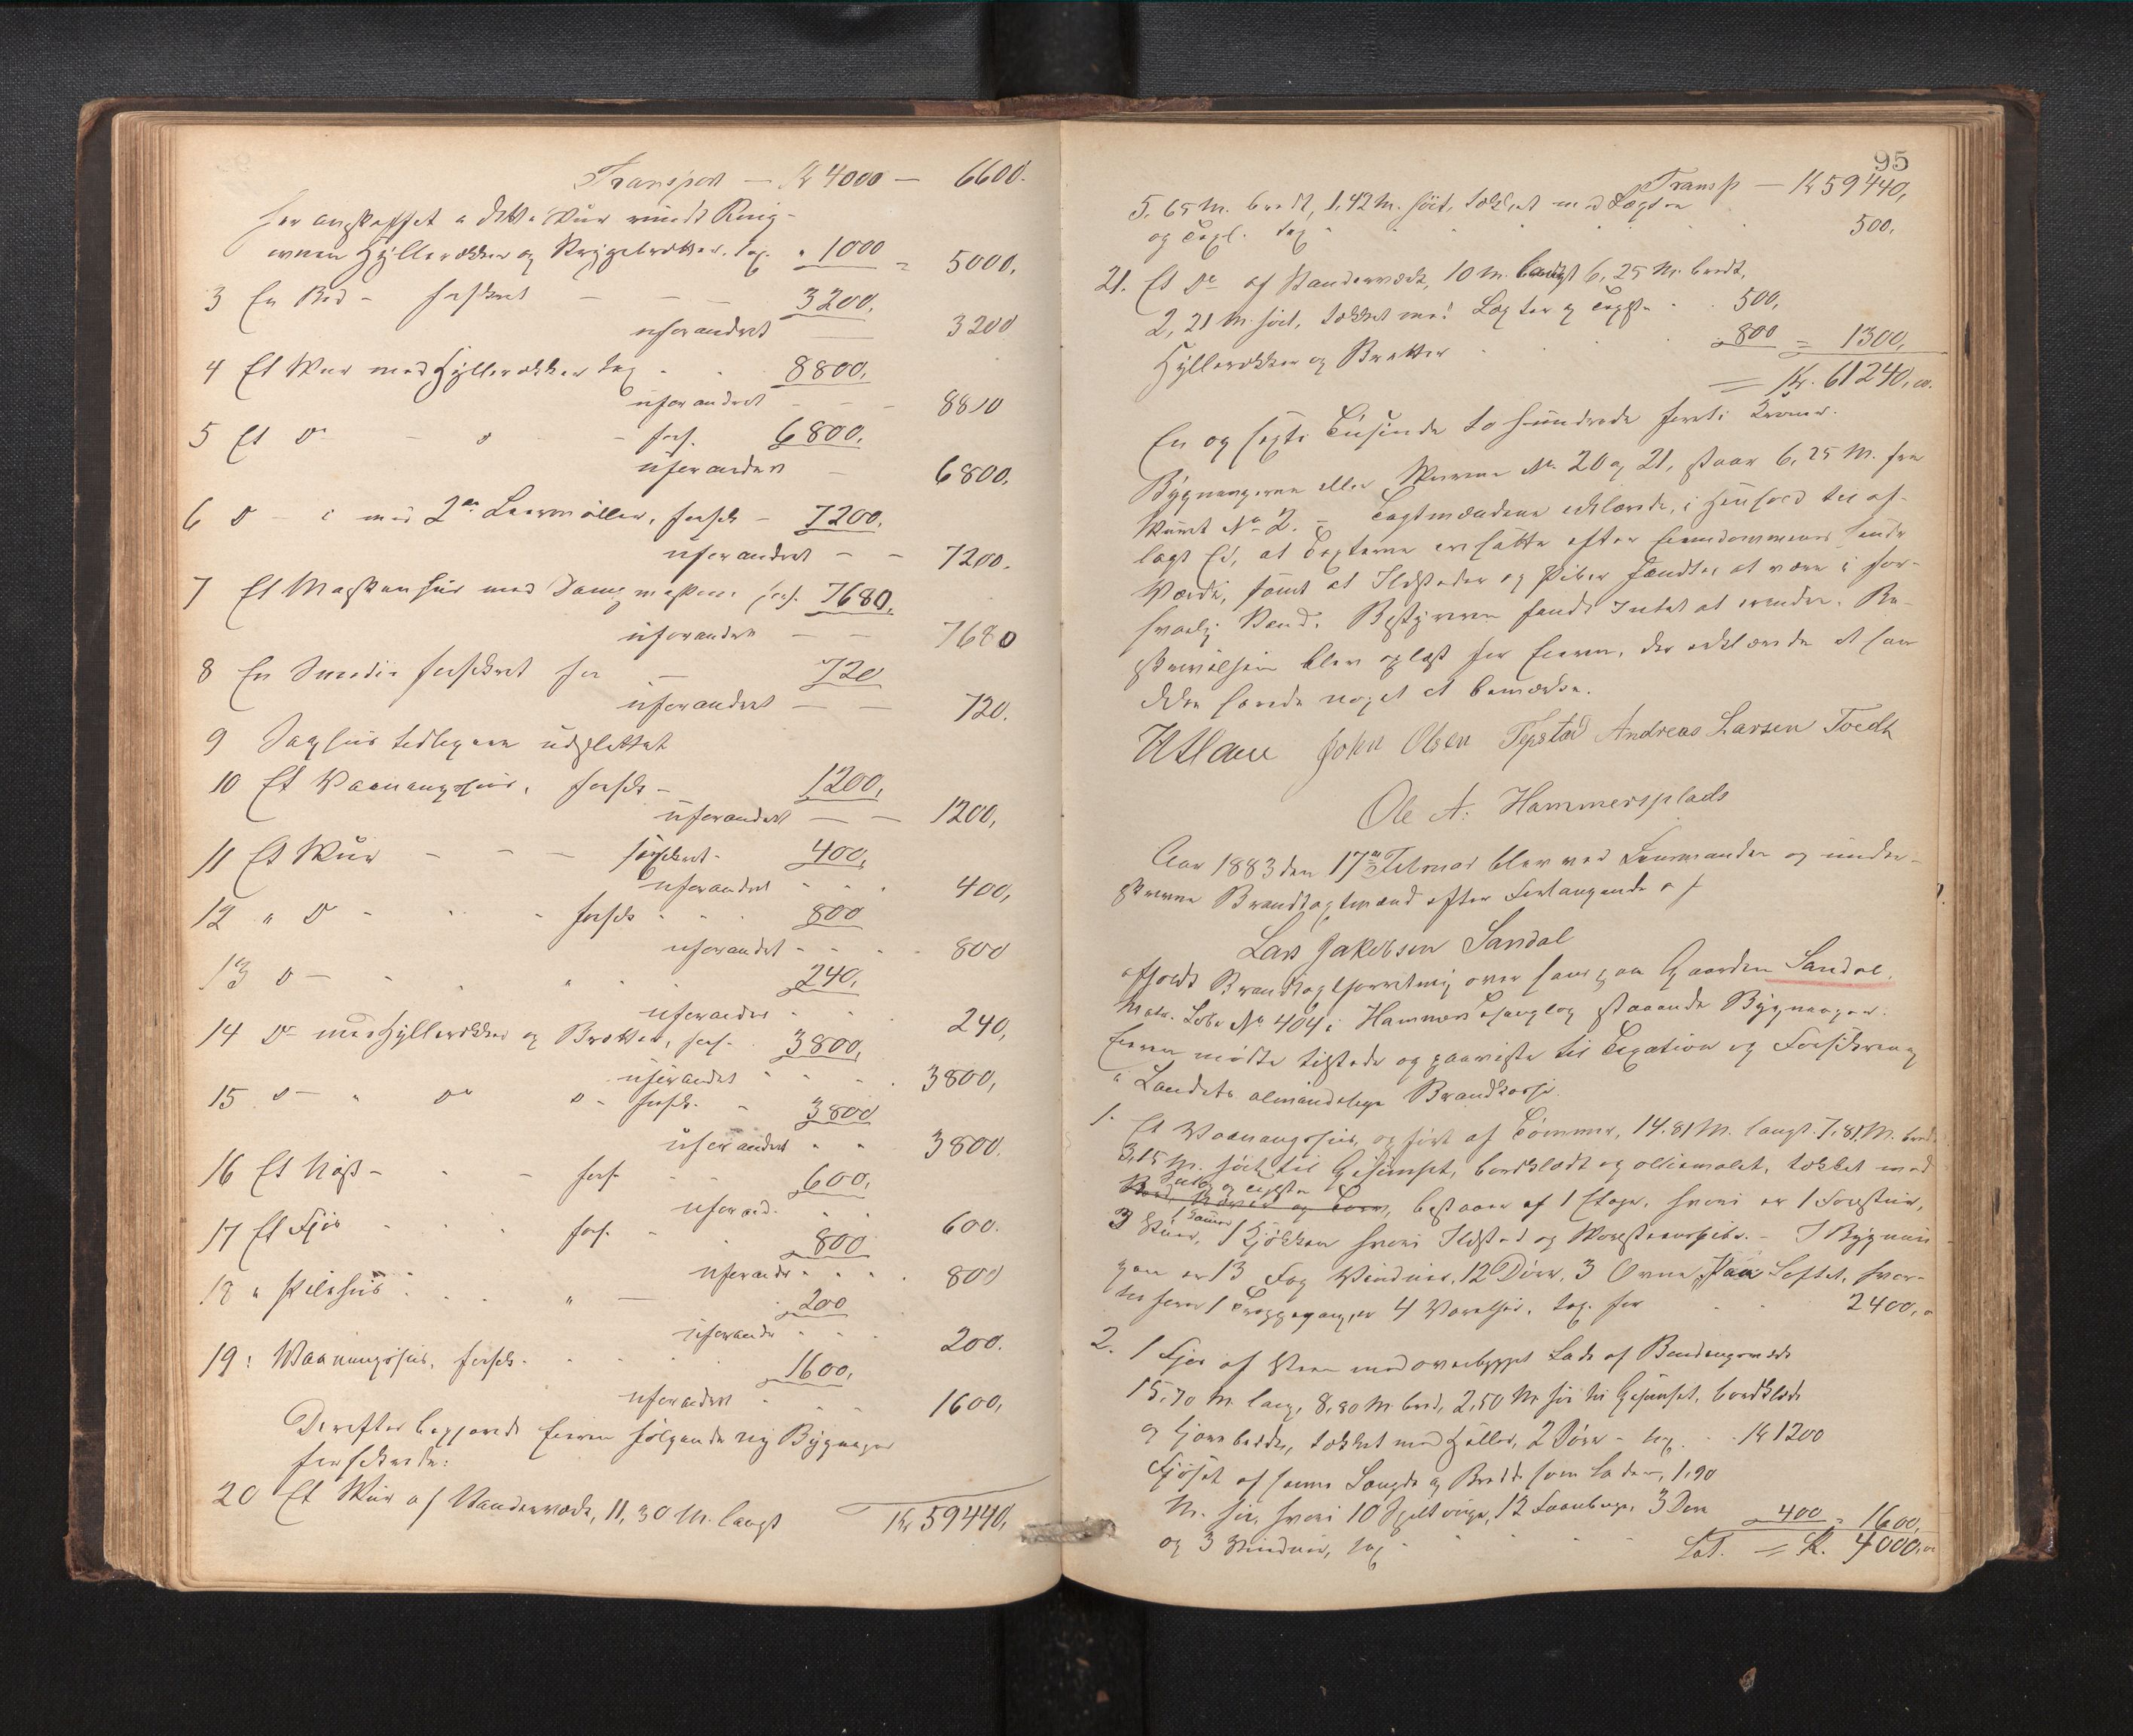 Transport — Kr 4000 — 6600.
for anskaffet i dette Skur rundt Ring-
ovnen Hyllerækker og Bræder, tax. " 1000 = 5000,
3 En Bod - forsikret — — — 3200,
uforandret 3200
4 Et Skur med Hyllerækker tax - - 8800,
uforandret - - - 8800
5 Et Do - - " - fors. 6800,
uforandret - 6800.
6 Do - i med 2de Leermøller, forsik - 7200,
uforandret - - 7200.
7 Et Maskinhuus med Dampmaskine fors. 7680,
uforandret — — 7680
8 En Smedie forsikret for — 720
uforandret — — 720.
9 Taghuus tidligere udslettet
10 Et Vaaningshuus, forsik - 1200,
uforandret — — 1200,
11 Et Skur - - — forsikret - 400,
uforandret - - . 400,
12 " Do - " - forsik - - 800
uforandret - - - 800
13 Do — - . " . . 240,
uforandret . . 240,
14 Do med Hyllerækker og Brætter, fors. 3800,
uforandret - - . 3800,
15 Do — " Do Do - forsik. - 3800
uforandret - - 3800.
16 Et Nøst - - - fors. - - 600,
uforand. . . 600.
17 Et Fjøs - - . fors. - . 800
uforandr - - . . 800
18 " Pilehuus . . . " — . 200
uforandr - - . 200.
19: Vaaningshuus, forsik. - . . 1600,
uforandret - - . 1600,
Derefter begjærede Eieren følgende nye Bygninger
forsikrede:
20 Et Skur af Standerværk, 11,30 M. langt Kr 59440,
95
Transp — Kr 59440,
5,65 M. bredt, 1,42 M. høit, tækket med Lægter
og Tagl. tax - . . . . . 500.
21. Et Do af Standerværk, 10 M. langt 6,25 M. bredt,
2,21 M. høit, tækket med Lægter og Tagsten . . 500,
Hyllerækker og Brætter . . . 800 = 1300,
= Kr. 61240,00.
En og sexti Tusinde to hundrede firti Kroner.
Bygningerne eller Skurene No 20 og 21, staar 6,25 M. fra
Skuret No 2. = Taxtmændene erklærede, i Henhold til af-
lagt Ed, at Taxterne ere satte efter Eiendommenes sande
Værdi, samt at Ildsteder og Piber fandtes at være i for-
svarlig Stand. Bestyreren fandt Intet at erindre. Be-
skrivelsen blev oplæst for Eieren, der erklærede at han
ikke havde noget at bemærke.
John Olsen Tepstad Andreas Larsen Toedt
Ole A. Hammersplads
Aar 1883 den 17de Februar blev ved Lensmanden og under-
skrevne Brandtaxtmænd efter Forlangende af
Lars Jakobsen Sandal
afholdt Brandtaxtforretning over hans paa Gaarden Sandal,
Matr. Løbe No 404 i Hammers Thinglag staaende Bygninger.
Eieren mødte tilstede og paaviste til Taxation og Forsikring
i Landets almindelige Brandkasse.
1. Et Vaaningshuus, opført af Tømmer, 14.81 M. langt. 7,81 M. bredt
3,15 M. høit til Gesimset, bordklædt og oliemalet, tækket med
Sutag og Tagsten
Bord, Næver og Torv, bestaar af 1 Etage, hvori er 1 Forstue,
3 Stuer, 1 Kammer 1 Kjøkken hvori Ildsted og Skorsteenspibe. - I Bygnin-
gen er 13 Fag Vinduer, 12 Døre, 3 Ovne, Paa Loftet, hvor-
til fører 1 Trappegang, er 4 Værelser, tax. for . . 2400,"
2. 1 Fjøs af Steen med overbygget Lade af Bindingsværk
15,70 M lang, 8,80 M bred, 2,50 M høi til Gesimset, bordklædt
og tjærebredet, tækket med Heller, 2 Døre - tax. . . Kr 1200
Fjøset af samme Længde og Bredde som Laden, 1,90
M. høi, hvori 10 Spiltouge, 12 Faarebinge, 3 Døre
og 3 Vinduer, tax . . . . 400 = 1600,
Lat. = Kr. 4000,00